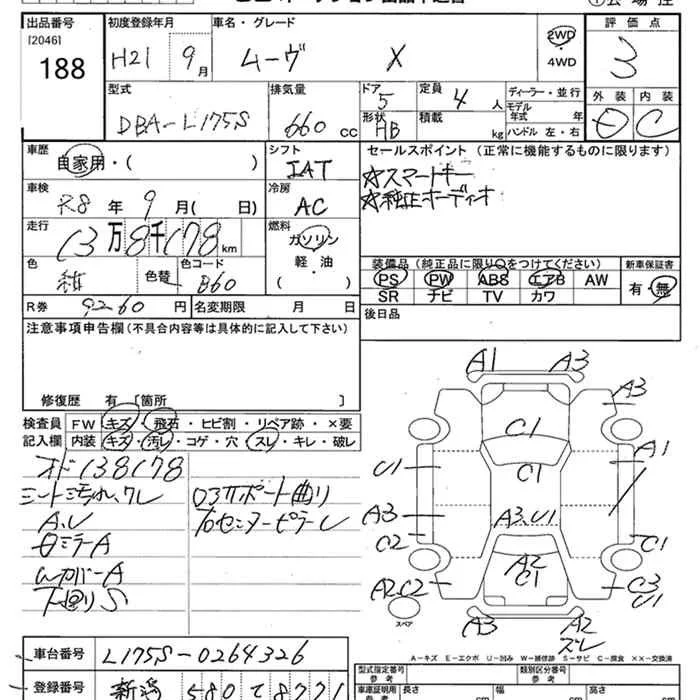 出品番号 初度登録年月 車名・グレード 評価点
[2046]
188 H21 9月 ムーヴ X 2WD ・ 4WD 3
型式 排気量 ドア 5 定員 4人 ディーラー・並行 外装 内装
DBA-L175S 660cc 形状 HB 積載 kg モデル年式 年 ハンドル 左・右 C
車歴 自家用・( ) シフト IAT セールスポイント (正常に機能するものに限ります)
車検 R8年9月(日) 冷房 AC ☆スマートキー
☆純正オーディオ
走行 13万8千178km 燃料 ガソリン 軽・油 ( )
色 色替 色コード B60
装備品 (純正品に限り○をつけてください) 新車保証書
PS PW ABS エアB AW 有・無
SR ナビ TV カワ
R券 9260円 名変期限 月 日 後日品
注意事項申告欄(不具合内容等は具体的に記入して下さい)
修復歴 有 [箇所 ]
検査員記入欄 FW キズ・飛石・ヒビ割・リペア跡・×要
内装 キズ・汚レ・コゲ・穴・スレ・キレ・破レ
オド138178
シート汚れ、スレ
A、U
ミラーA
カバーA
下回りS
サポート曲り
センターピラーU
A1 A3
A3
C1
A1
U1 C1
A3 A3、U1
C2 C1
A2
C1
A2C2 C3
U1
スペア
A3 A2
スレ
A-キズ E-エクボ U-凹み W-補修跡 S-サビ C-腐食 XX-交換済
車台番号 L175S-0264326
型式指定番号 参考 類別区分番号 参考
登録番号 新潟 580
車庫証明用 参考 長さ cm 幅 cm 高さ cm